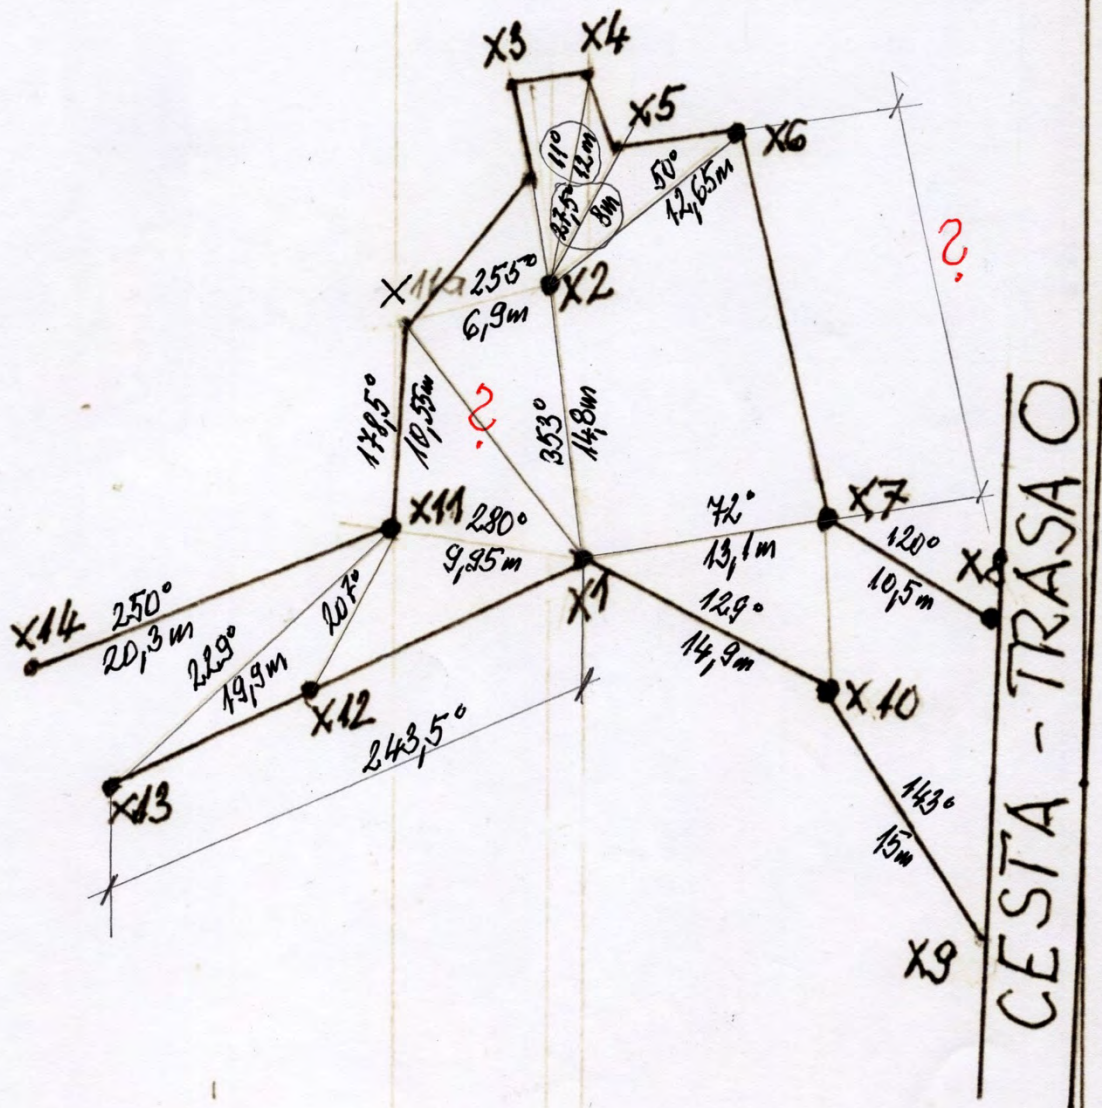 X3
X4
X5
X6
11°
12m
27,5°
8m
50°
12,65m
?
X11a
255°
6,9m
X2
178,5°
10,55m
?
353°
14,8m
X11
280°
9,95m
X7
72°
13,1m
120°
10,5m
X8
X1
X14
250°
20,3m
207°
229°
19,9m
129°
14,9m
X12
X10
243,5°
X13
143°
15m
X9
CESTA - TRASA O